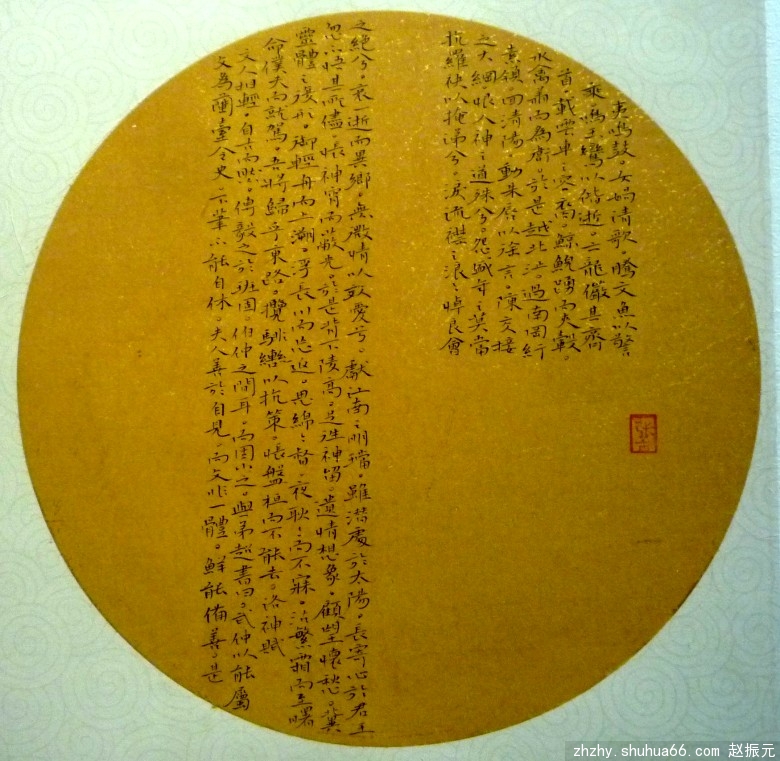 夷鳴鼓。女媧清歌。騰文魚以警
乘。鳴玉鸞以偕逝。六龍儼其齊
首。載雲車之容裔。鯨鯢踴而夾轂。
水禽翔而為衛。於是越北沚。過南岡。紆
素領。回清陽。動朱唇以徐言。陳交接
之大綱。恨人神之道殊兮。怨盛年之莫當
抗羅袂以掩涕兮。淚流襟之浪々。悼良會
之絕兮。哀一逝而異鄉。無微情以效愛兮。獻江南之明璫。雖潛處於太陽。長寄心於君王
忽不悟其所儘。悵神宵而蔽光。於是背下陵高。足往神留。遺情想象。顧望懷愁。冀
靈體之復形。御輕舟而上溯。浮長川而忘返。思綿々督。夜耿々而不寐。沾繁霜而至曙
命僕夫而就駕。吾將歸乎東路。攬騑轡以抗策。悵盤桓而不能去。洛神賦
文人相輕。自古而然。傅毅之於班固。伯仲之間耳。而固小之。與弟超書曰。武仲以能屬
文為蘭臺令史。下筆不能自休。夫人善於自見。而文非一體。鮮能備善。是
zhzhy.shuhua66.com 赵振元